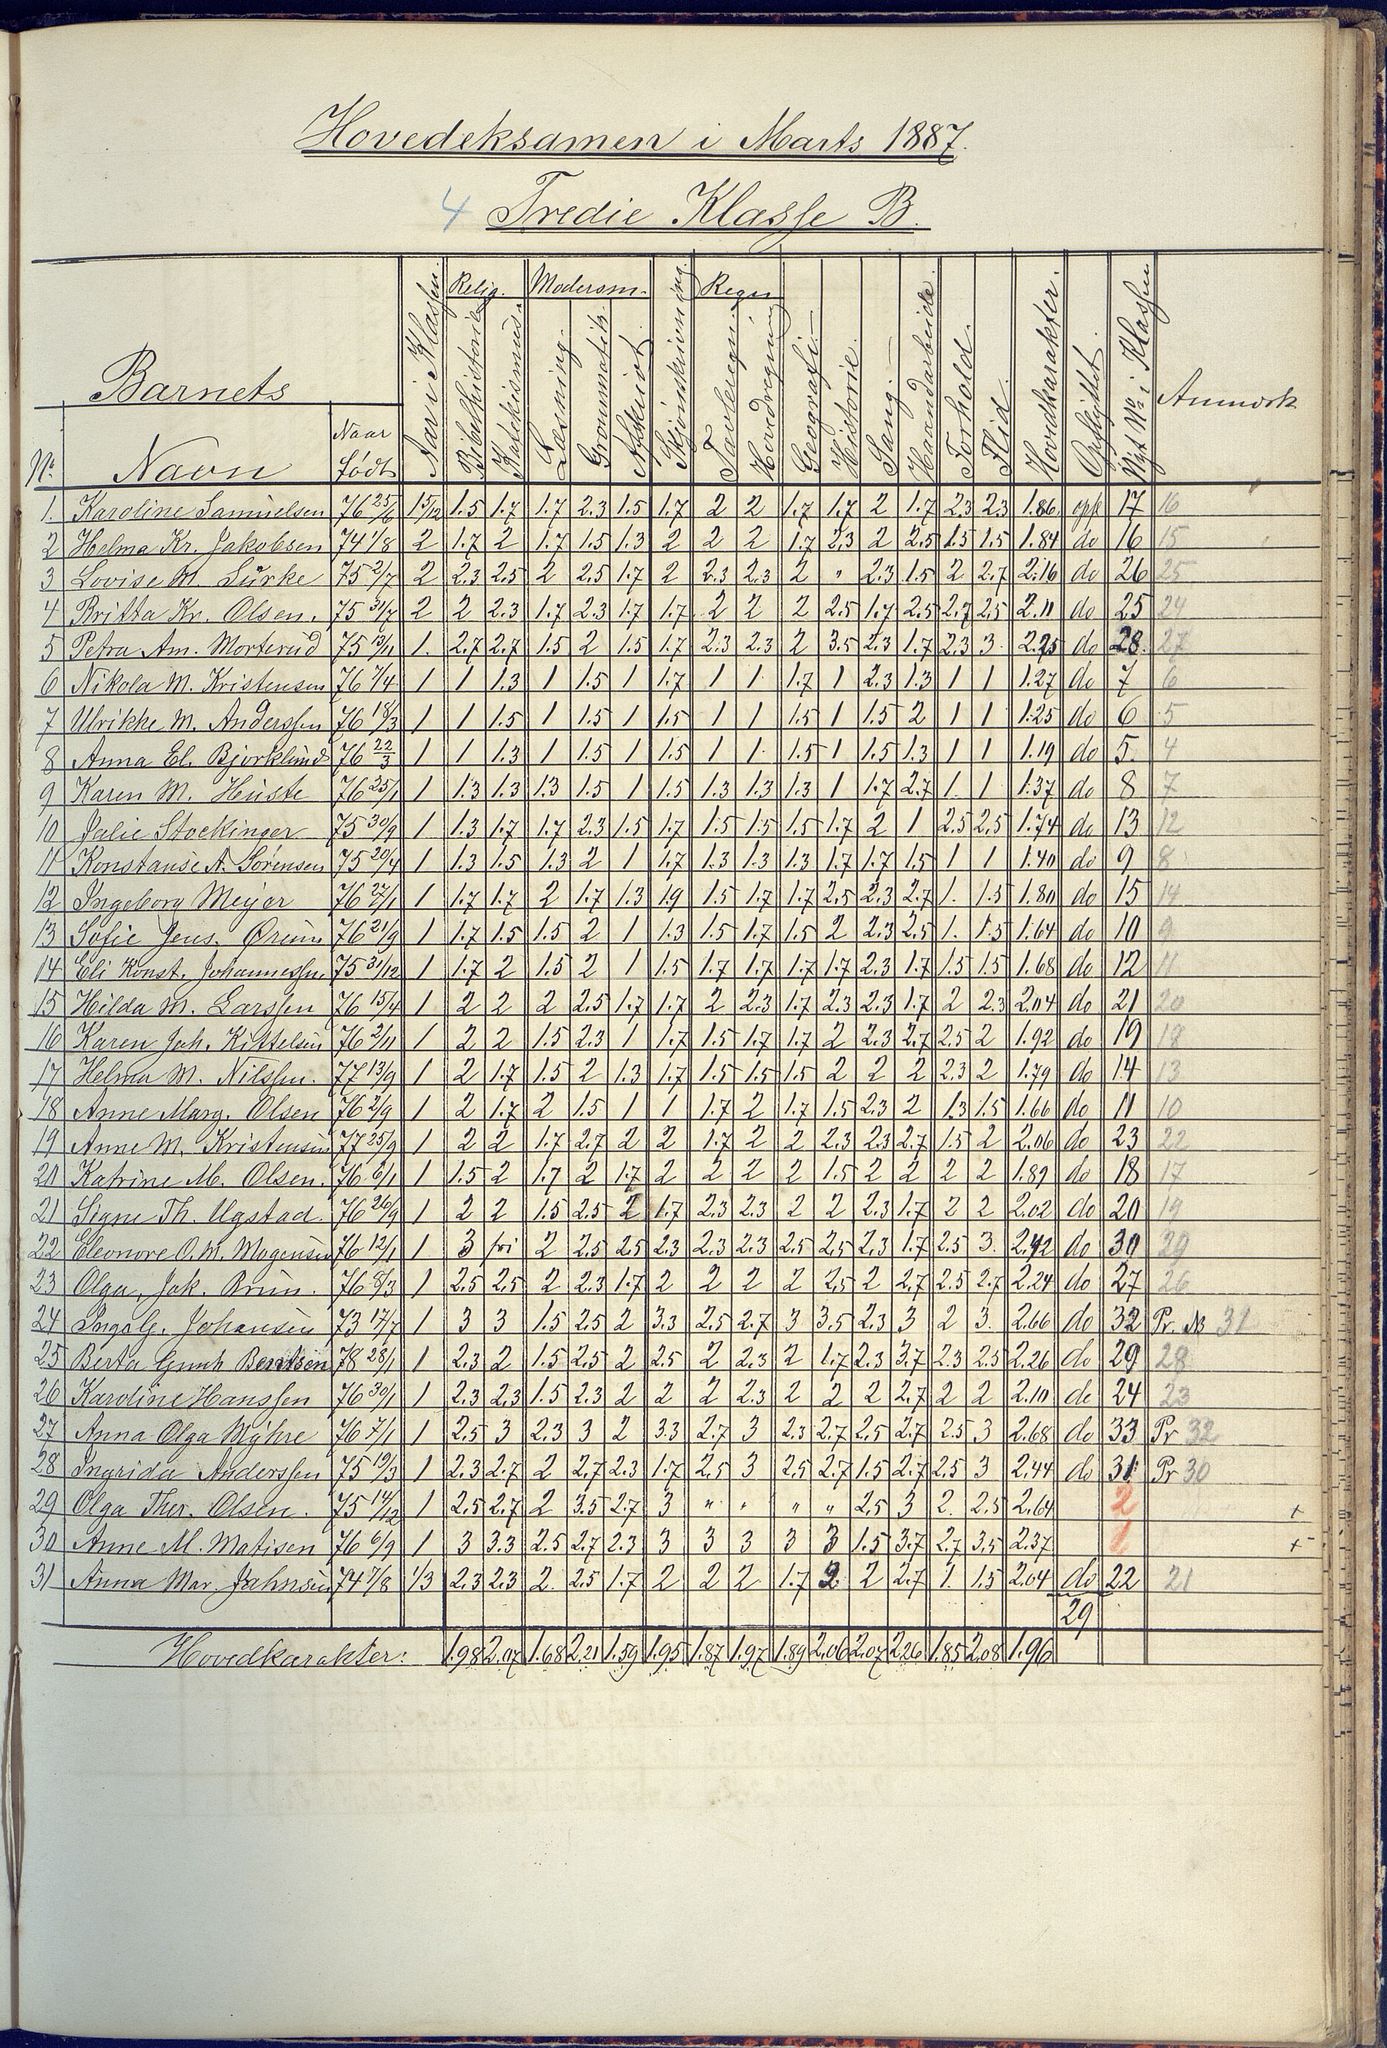 Hovedeksamen i Marts 1887.
4 Tredie Klasse B.
Barnets
No. Navn Naar født Aar i Klassen. Relig. Bibelhistorie Katekismus. Modersm. Læsning. Grammatik. Afskrivt Skjønskrivning. Regn Tavleregn. Hovedregning Geografi Historie. Sang Haandarbeide. Forhold. Flid. Hovedkarakter. Opflyttet. Nyt No. i Klassen Anmærk
1. Karoline Samuelsen 76 25/6 1 5/12 1.5 1.7 1.7 2.3 1.5 1.7 2 2 1.7 1.7 2 1.7 2.3 2.3 1.86 opf 17 16
2 Helma Kr. Jakobsen 74 1/8 2 1.7 2 1.7 1.5 1.3 2 2 2 1.7 2.3 2 2.5 1.5 1.5 1.84 do 16 15
3 Lovise M. Lurke 75 2/7 2 2.3 2.5 2 2.5 1.7 2 2.3 2.3 2 " 2.3 1.5 2 2.7 2.16 do 26 25
4 Britta Kr. Olsen. 75 31/7 2 2 2.3 1.7 2.3 1.7 1.7 2 2 2 2.5 1.7 2.5 2.7 2.5 2.11 do 25 24
5 Petra Am. Morterud 75 13/11 1. 2.7 2.7 1.5 2 1.5 1.7 2.3 2.3 2 3.5 2.3 1.7 2.3 3. 2.25 do 28. 27
6 Nikola M. Kristensen 76 7/4 1 1 1.3 1 1.5 1 1.7 1 1 1.7 1 2.3 1.3 1 1 1.27 do 7 6
7 Ulrikke M. Anderssen 76 18/3 1 1 1.5 1 1.5 1 1.5 1 1 1.5 1 1.5 2 1 1 1.25 do 6 5
8 Anna El. Bjorklund 76 22/3 1 1 1.3 1 1.5 1 1.5 1 1. 1.5 1 1.5 1.3 1 1 1.19 do 5. 4
9 Karen M. Huste 76 25/1 1 1.3 1.3 1.3 1.5 1 1.5 1.3 1.3 1.3 1 1.7 2.7 1. 1 1.37 do 8 7
10 Julie Stockinger 75 30/9 1 1.3 1.7 1.7 2.3 1.5 1.7 1.5 1.5 1.5 1.7 2 1 2.5 2.5 1.74 do 13 12
11 Konstanse A. Sørensen 75 20/4 1 1.3 1.5 1.3 2 1 1.7 1.3 1.3 1.3 1.7 1.7 1.5 1 1 1.40 do 9 8
12 Ingeborg Meyer 76 27/1 1 1.7 1.7 2 1.7 1.3 1.9 1.5 1.7 1.7 2.5 2.3 2.7 1. 1.5 1.80 do 15 14
13 Sofie Jens. Ørum 76 21/9 1 1.7 1.5 1.5 2 1 1.3 1.5 1.7 1.5 2 2.3 2.5 1. 1.5 1.64 do 10 9
14 Eli Konst. Johannessen 75 31/12 1 1.7 2 1.5 2 1 1.5 1.7 1.7 1.7 1.7 2.3 1.7 1.5 1.5 1.68 do 12 11
15 Hilda M. Larssen 76 15/4 1 2 2 2 2.5 1.7 1.7 2 2.3 1.7 2.3 2.3 1.7 2 2.3 2.04 do 21 20
16 Karen Joh. Kittelsen 76 2/11 1 2 2 1.5 2.3 1 1.7 1.5 1.7 1.7 2 2.3 2.7 2.5 2 1.92 do 19 18
17 Helma M. Nilssen. 77 13/9 1 2 1.7 1.5 2 1.3 1.7 1.5 1.5 1.5 2 2 2 2.3 2 1.79 do 14 13
18 Anne Marg. Olsen 76 2/9 1 2 1.7 2 1.5 1 1 1.7 2 1.7 1.5 2.3 2 1.3 1.5 1.66 do 11 10
19 Anne M. Kristensen 77 25/9 1 2 2 1.7 2.7 2 2 1.7 2 2 2.3 2.3 2.7 1.5 2 2.06 do 23 22
20 Katrine M. Olsen. 76 6/1 1 1.5 2 1.7 2 1.7 2 2 2 2 1.5 2 2 2 2 1.89 do 18 17
21 Signe Th. Ugstad. 76 26/9 1 2 2 1.5 2.5 2 1.7 2.3 2.3 2 2 2.3 1.7 2 2 2.02 do 20 19
22 Eleonore O. M. Mogensen 76 12/1 1 3 fri 2 2.5 2.5 2.3 2.3 2.3 2.5 2.5 2.3 1.7 2.5 3. 2.42 do 30 29
23 Olga, Jak. Brun. 76 8/3 1 2.5 2.5 2 2.3 1.7 2 2 2 2 2.5 2 2.7 2.5 2.7 2.24 do 27 26
24 Inga G. Johansen 73 17/7 1 3 3 1.5 2.5 2 3.3 2.5 2.7 3 3.5 2.3 3 2 3. 2.66 do 32 Pr. No 31
25 Berta Gunh Berntsen 78 28/1 1 2.3 2 1.5 2.5 2 2.5 2 2.3 2 1.7 2.3 3.7 2.3 2.5 2.26 do 29 28
26 Karoline Hanssen 76 30/1 1 2.3 2.3 1.5 2.3 2 2 2 2.3 2 2 2 2.7 2 2 2.10 do 24 23
27 Anna Olga Myhre 76 7/1 1 2.5 3 2.3 3 2 3.3 2.7 3 2.3 2.7 2.5 2.7 2.5 3 2.68 do 33 Pr 32
28 Ingrida Anderssen 75 19/3 1 2.3 2.7 2 2.7 2.3 1.7 2.5 3 2.5 2.7 1.5 2.7 2.5 3 2.44 do 31 Pr 30
29 Olga Ther. Olsen. 75 14/12 1 2.5 2.7 2 3.5 2.7 3 " " " " 2.5 3 2. 2.5 2.64 2 +
30 Anne M. Matisen 76 6/9 1 3 3.3 2.5 2.7 2.3 3 3 3 3 3 1.5 3.7 2.7 3.5 2.37 1 +
31 Anna Mar. Jahnsen 74 7/8 1/3 2.3 2.3 2. 2.5 1.7 2 2 2 1.7 2 2 2.7 1. 1.5 2.04 do 22 21
29
Hovedkarakter: 1.98 2.07 1.68 2.21 1.59 1.95 1.87 1.97 1.89 2.06 2.07 2.26 1.85 2.08 1.96